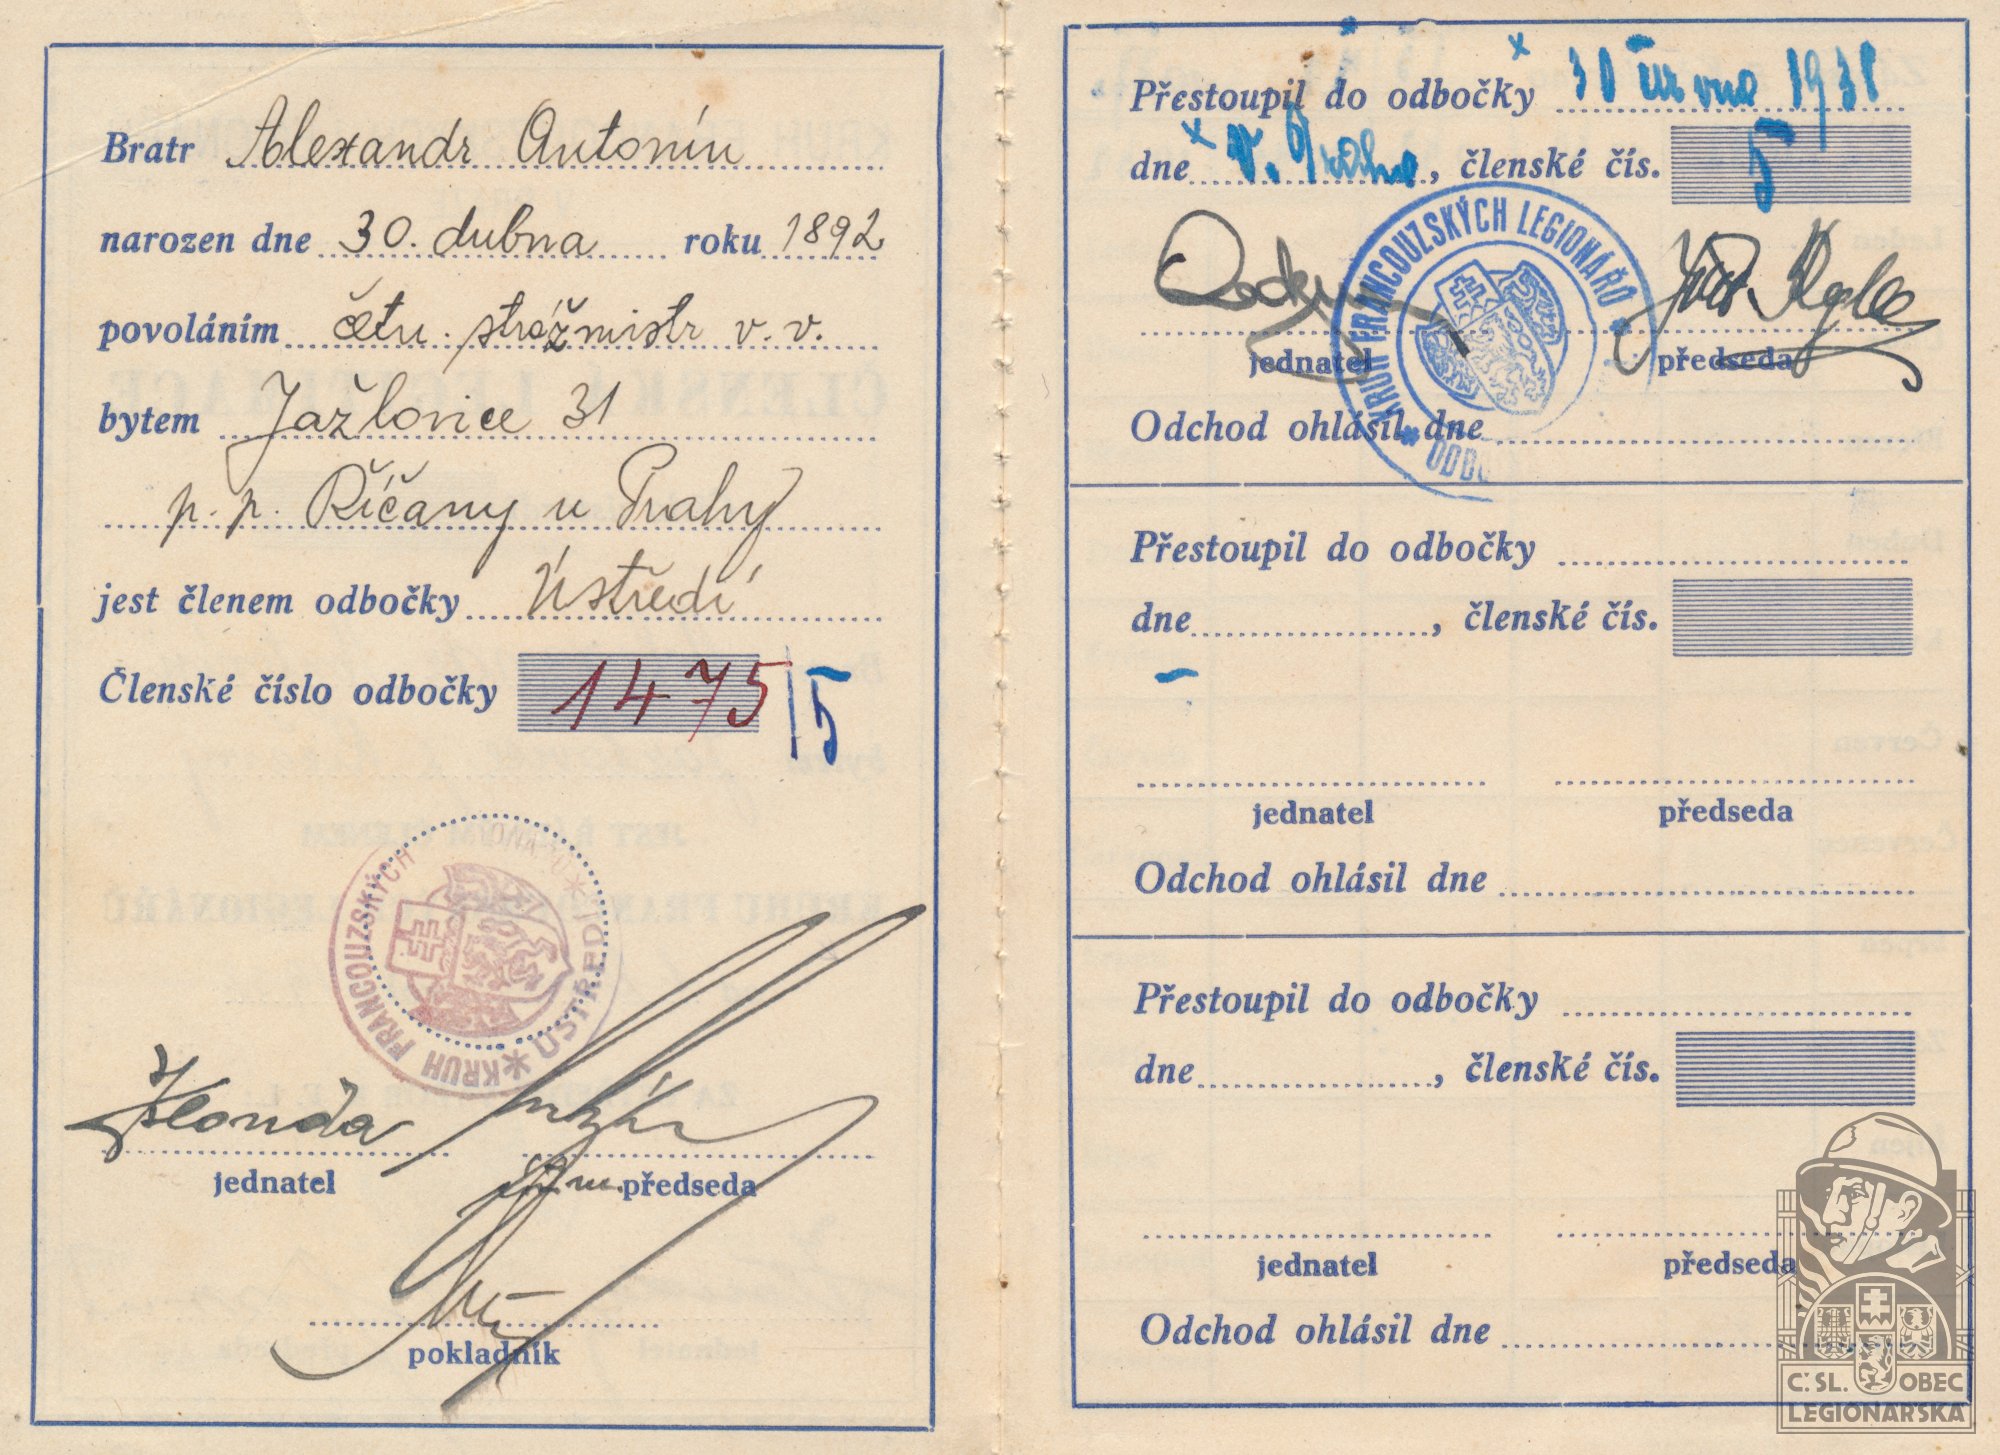 Bratr Alexandr Antonín
narozen dne 30. dubna roku 1892
povoláním četn. strážmistr v. v.
bytem Jažlovice 31
p. p. Říčany u Prahy
jest členem odbočky Ústředí
Členské číslo odbočky 1475/5
KRUH FRANCOUZSKÝCH LEGIONÁŘŮ
ÚSTŘEDÍ
jednatel
předseda
pokladník
Přestoupil do odbočky × 30 června 1938
dne × V. Praha, členské čís. 5
KRUH FRANCOUZSKÝCH LEGIONÁŘŮ
jednatel předseda
Odchod ohlásil dne
Přestoupil do odbočky
dne , členské čís.
jednatel předseda
Odchod ohlásil dne
Přestoupil do odbočky
dne , členské čís.
jednatel předseda
Odchod ohlásil dne
Č. SL. OBEC
LEGIONÁŘSKÁ